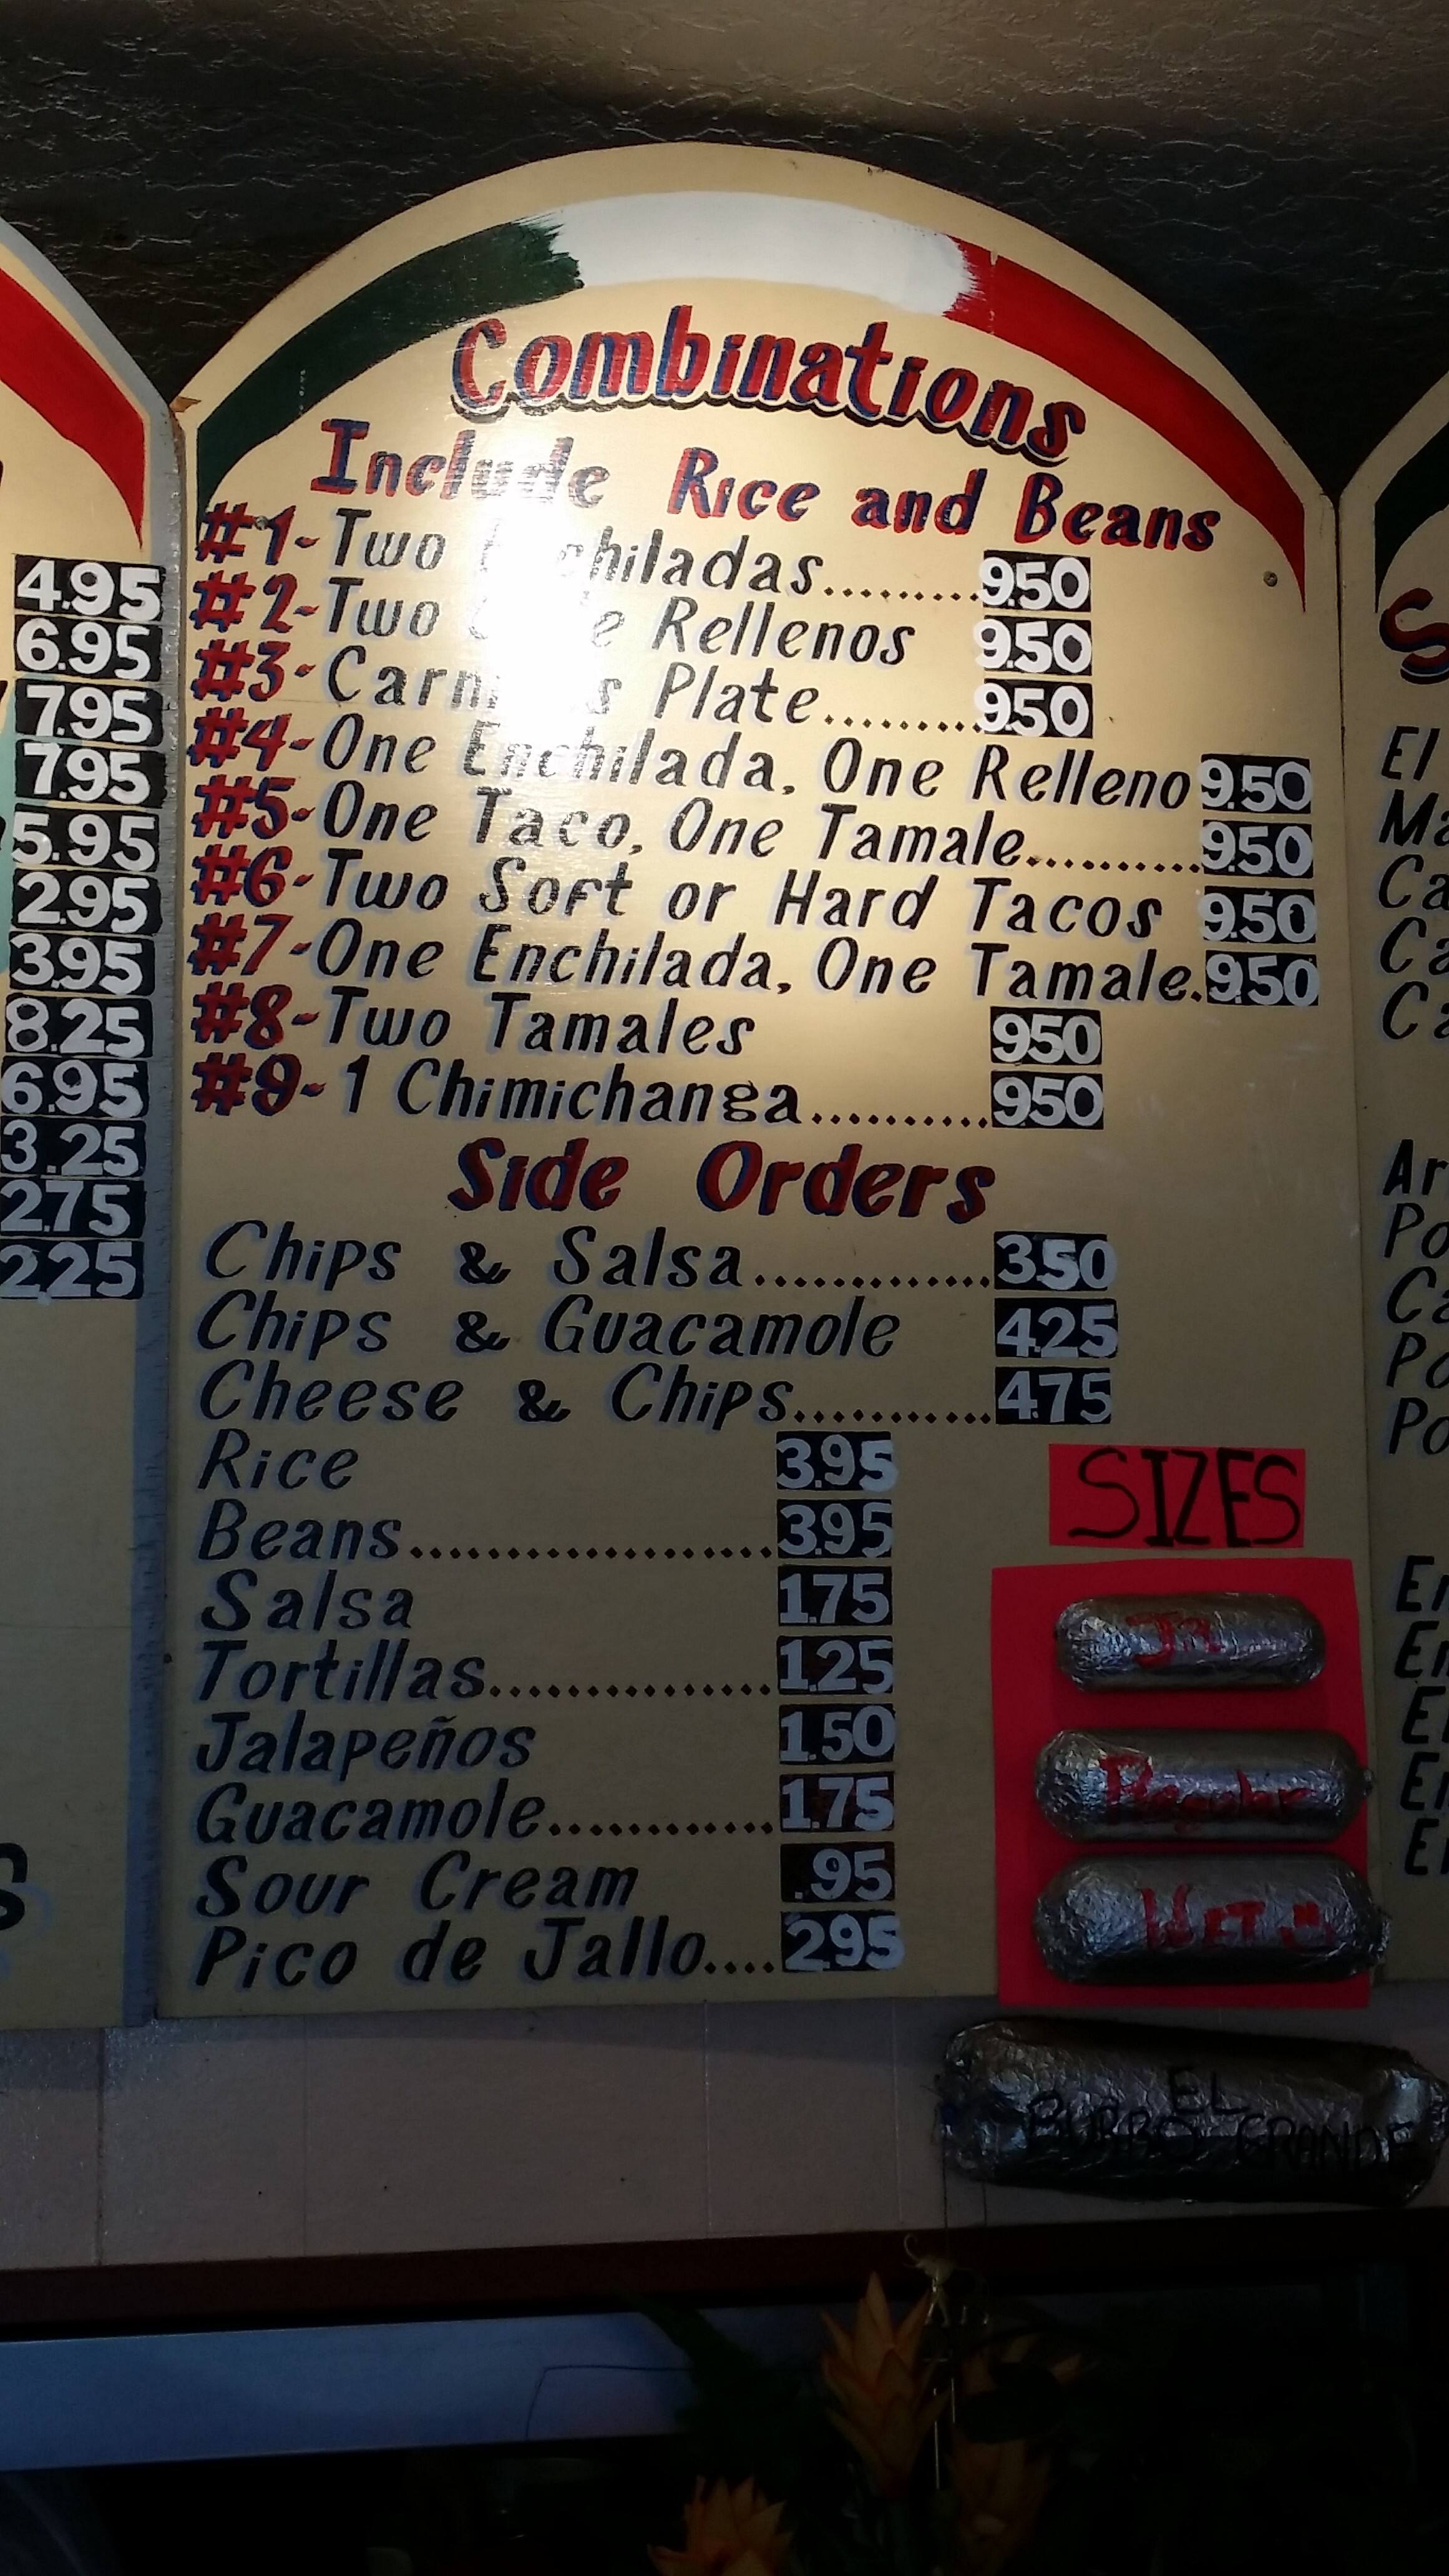 4.95
6.95
7.95
7.95
5.95
2.95
3.95
8.25
6.95
3.25
2.75
2.25
Combinations
Include Rice and Beans
#1-Two chiladas.........9.50
#2-Two Rellenos 9.50
#3-Carn s Plate.........9.50
#4-One Enchilada, One Relleno 9.50
#5-One Taco, One Tamale..........9.50
#6-Two Soft or Hard Tacos 9.50
#7-One Enchilada, One Tamale.9.50
#8-Two Tamales 950
#9-1 Chimichanga..........950
Side Orders
Chips & Salsa.............3.50
Chips & Guacamole 4.25
Cheese & Chips...........4.75
Rice 3.95
Beans...................3.95
Salsa 1.75
Tortillas...............1.25
Jalapeños 1.50
Guacamole............1.75
Sour Cream .95
Pico de Jallo....2.95
SIZES
Jr
Regular
WET
EL
BURRO GRANDE
El
Ma
Ca
Ca
Ca
Ar
Po
Ca
Po
Po